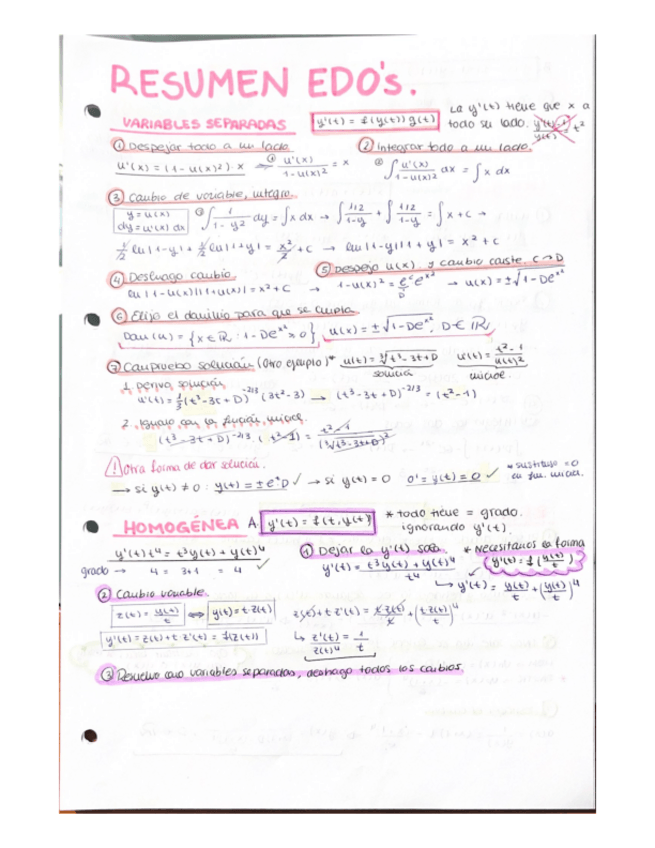 RESUMEN EDO's.
VARIABLES SEPARADAS y'(t) = f(y(t)) g(t) La y'(t) tiene que ir a
todo su lado. y'(t)-1 / y(t) = t²
① Despejar todo a un lado. ② Integrar todo a un lado.
u'(x) = (1-u(x)²)·x → ① u'(x)/(1-u(x)²) = x ② ∫ u'(x)/(1-u(x)²) dx = ∫ x dx
③ Cambio de variable, integro.
y = u(x)
dy = u'(x) dx
③ ∫ 1/(1-y²) dy = ∫ x dx → ∫ (1/2)/(1-y) + ∫ (1/2)/(1+y) = ∫ x + C →
1/2 ln|1-y| + 1/2 ln|1+y| = x²/2 + C → ln|1-y||1+y| = x² + C
④ Deshago cambio. ⑤ Despejo u(x) y cambio C→D
ln|1-u(x)||1+u(x)| = x² + C → 1-u(x)² = e^c e^x² → u(x) = ±√(1-De^x²)
D
⑥ Elijo el dominio para que se cumpla.
Dom(u) = {x∈ℝ : 1-De^x² > 0}, u(x) = ±√(1-De^x²), D∈ℝ
⑦ Compruebo solución (otro ejemplo)* u(t) = ∛(t³-3t+D) u'(t) = (t²-1)/u(t)²
solución inicial.
1. Derivo solución
u'(t) = 1/3 (t³-3t+D)^-2/3 (3t²-3) → (t³-3t+D)^-2/3 = (t²-1)
2. Igualo con la función inicial.
(t³-3t+D)^-2/3 · (t²-1) = (t²-1)/(∛(t³-3t+D))²
! Otra forma de dar solución.
→ si y(t) ≠ 0 : y(t) = ±e^t D ✓ → si y(t) = 0 0' = y(t) = 0 ✓ * sustituyo =0
en fun. inicial.
HOMOGÉNEA A y'(t) = f(t, y(t)) * todo tiene = grado.
ignorando y'(t)
y'(t)t⁴ = t³y(t) + y(t)⁴ ① Dejar la y'(t) sola. * Necesitamos la forma
grado → 4 = 3+1 = 4 ✓ y'(t) = (t³y(t) + y(t)⁴)/t⁴ y'(t) = f(y(t)/t)
↳ y'(t) = y(t)/t + (y(t)/t)⁴
② Cambio variable.
z(t) = y(t)/t ⟺ y(t) = t·z(t) z(t) + t z'(t) = t·z(t)/t + (t z(t)/t)⁴
y'(t) = z(t) + t z'(t) = f(z(t)) ↳ z'(t)/z(t)⁴ = 1/t
③ Resuelvo como variables separadas, deshago todos los cambios.